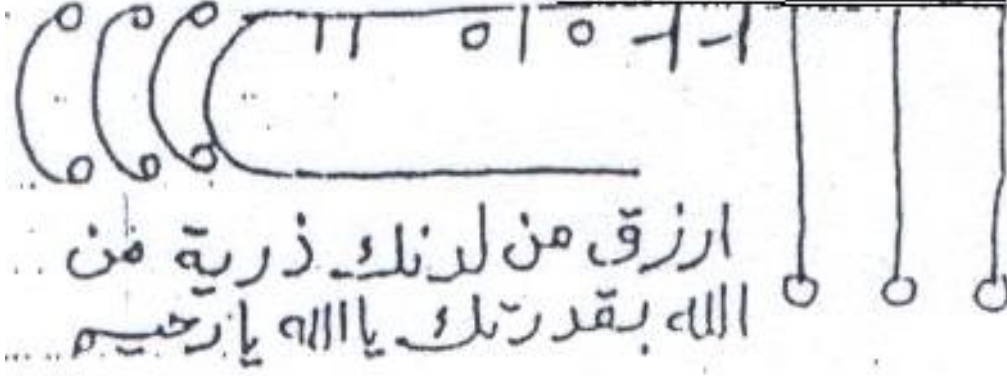 ارزق من لدنك ذرية من
الله بقدرتك ياالله يارحيم